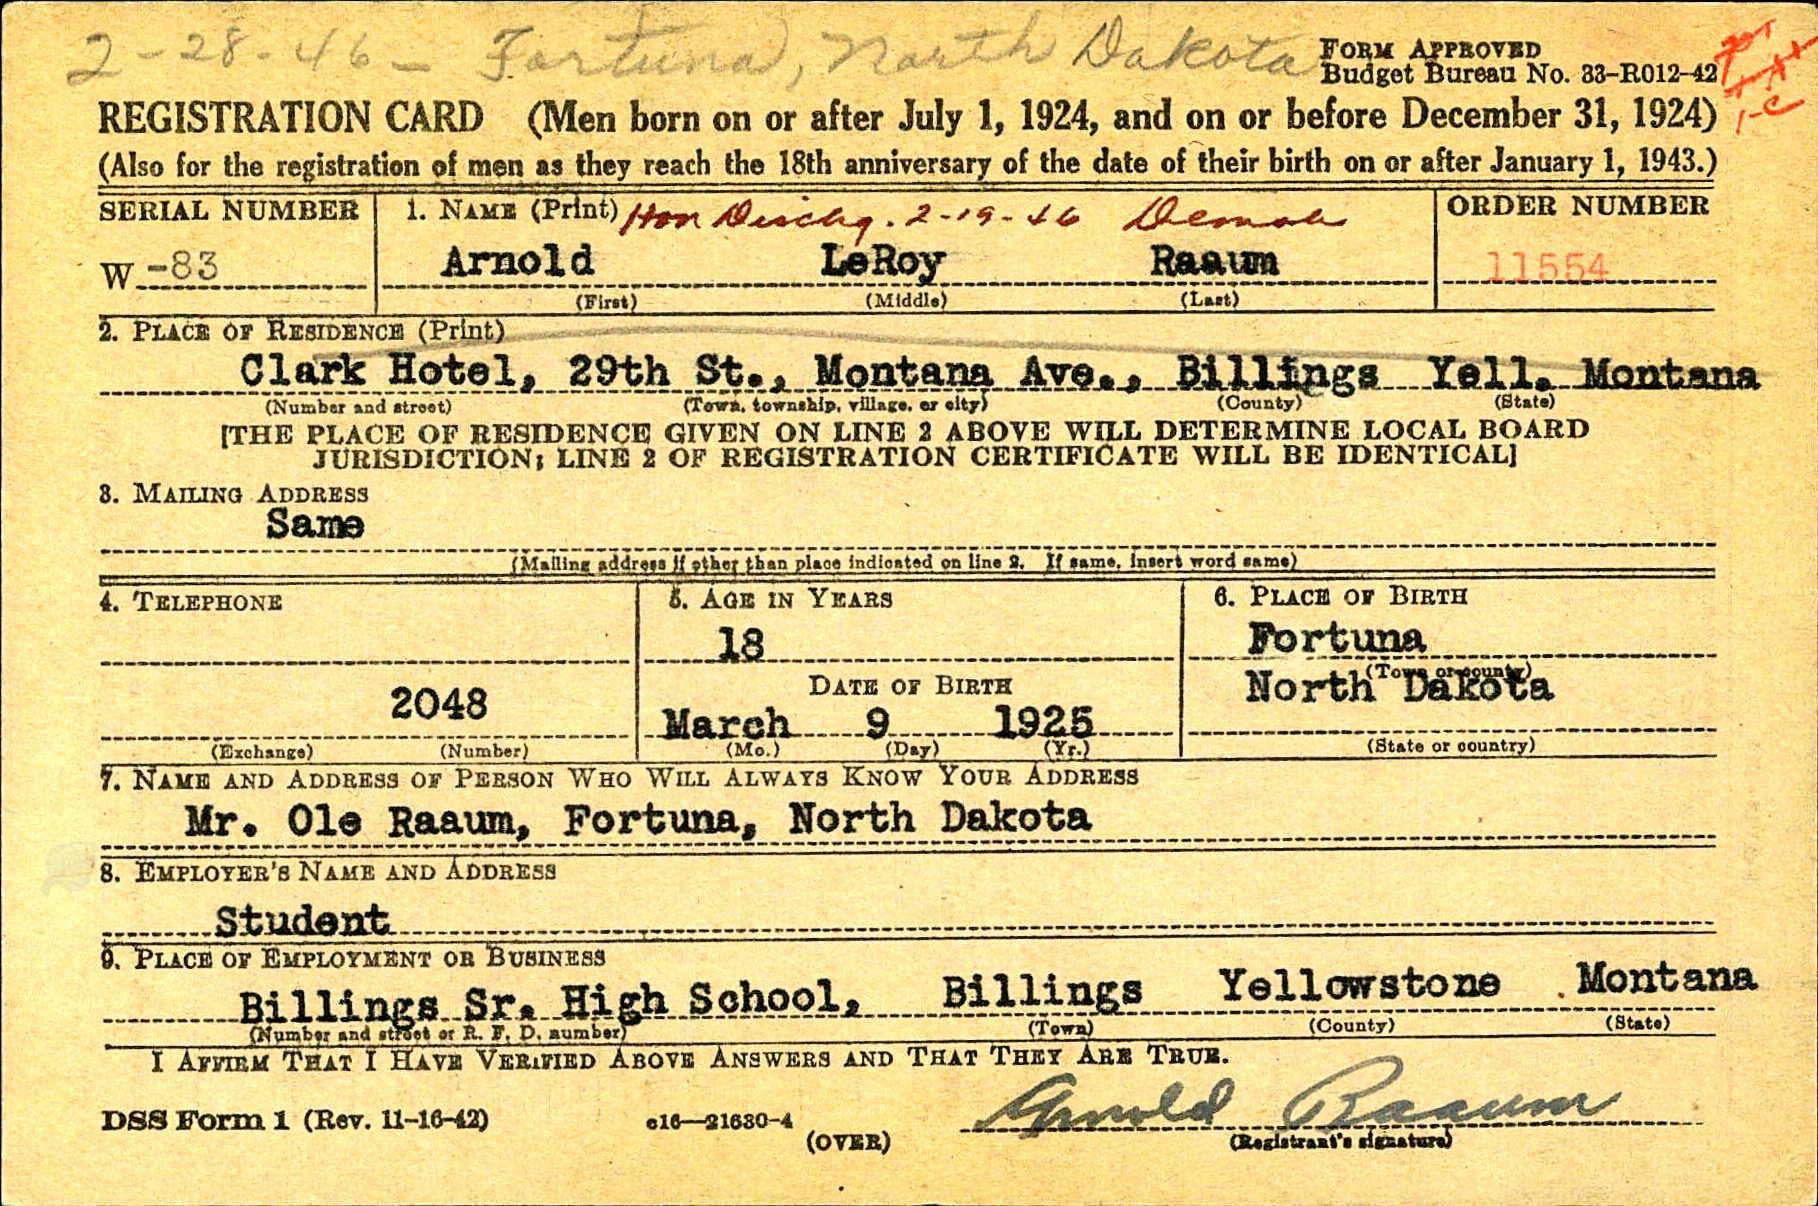 2-28-46 - Fortuna, North Dakota
FORM APPROVED
Budget Bureau No. 33-R012-42
REGISTRATION CARD (Men born on or after July 1, 1924, and on or before December 31, 1924)
1-C
(Also for the registration of men as they reach the 18th anniversary of the date of their birth on or after January 1, 1943.)
SERIAL NUMBER
1. NAME (Print)
Hon Dischg. 2-19-46 Demob
ORDER NUMBER
W -83
Arnold LeRoy Raaum
11554
(First) (Middle) (Last)
2. PLACE OF RESIDENCE (Print)
Clark Hotel, 29th St., Montana Ave., Billings Yell. Montana
(Number and street) (Town, township, village, or city) (County) (State)
[THE PLACE OF RESIDENCE GIVEN ON LINE 2 ABOVE WILL DETERMINE LOCAL BOARD
JURISDICTION; LINE 2 OF REGISTRATION CERTIFICATE WILL BE IDENTICAL]
3. MAILING ADDRESS
Same
(Mailing address if other than place indicated on line 2. If same, insert word same)
4. TELEPHONE
2048
(Exchange) (Number)
5. AGE IN YEARS
18
DATE OF BIRTH
March 9 1925
(Mo.) (Day) (Yr.)
6. PLACE OF BIRTH
Fortuna
(Town or county)
North Dakota
(State or country)
7. NAME AND ADDRESS OF PERSON WHO WILL ALWAYS KNOW YOUR ADDRESS
Mr. Ole Raaum, Fortuna, North Dakota
8. EMPLOYER'S NAME AND ADDRESS
Student
9. PLACE OF EMPLOYMENT OR BUSINESS
Billings Sr. High School, Billings Yellowstone Montana
(Number and street or R. F. D. number) (Town) (County) (State)
I AFFIRM THAT I HAVE VERIFIED ABOVE ANSWERS AND THAT THEY ARE TRUE.
Arnold Raaum
DSS Form 1 (Rev. 11-16-42) c16—21630-4 (OVER) (Registrant's signature)